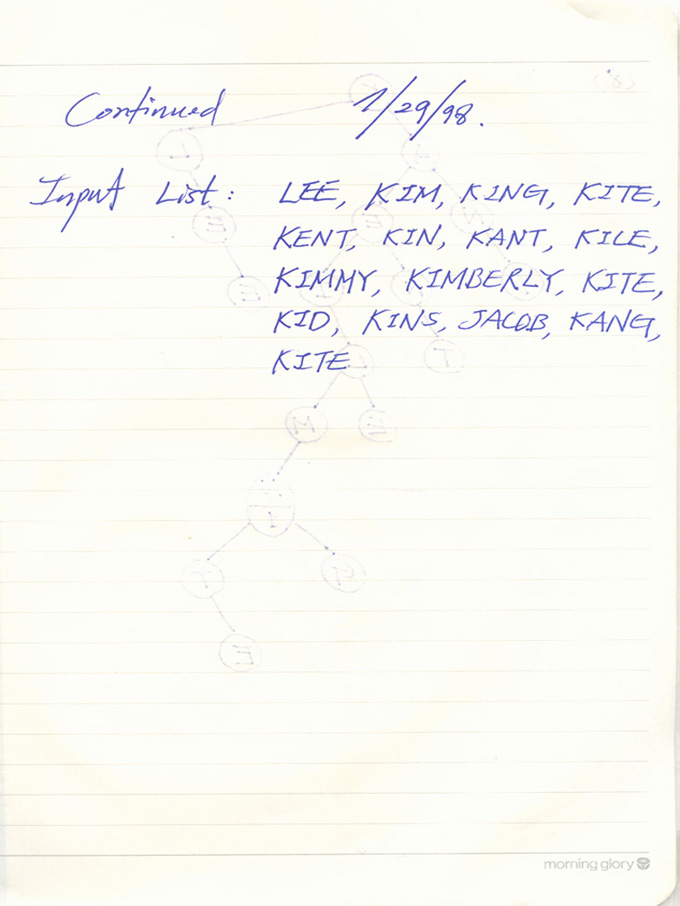 Continued 1/29/98.
Input List: LEE, KIM, KING, KITE,
KENT, KIN, KANT, KILE,
KIMMY, KIMBERLY, KITE,
KID, KINS, JACOB, KANG,
KITE
morning glory